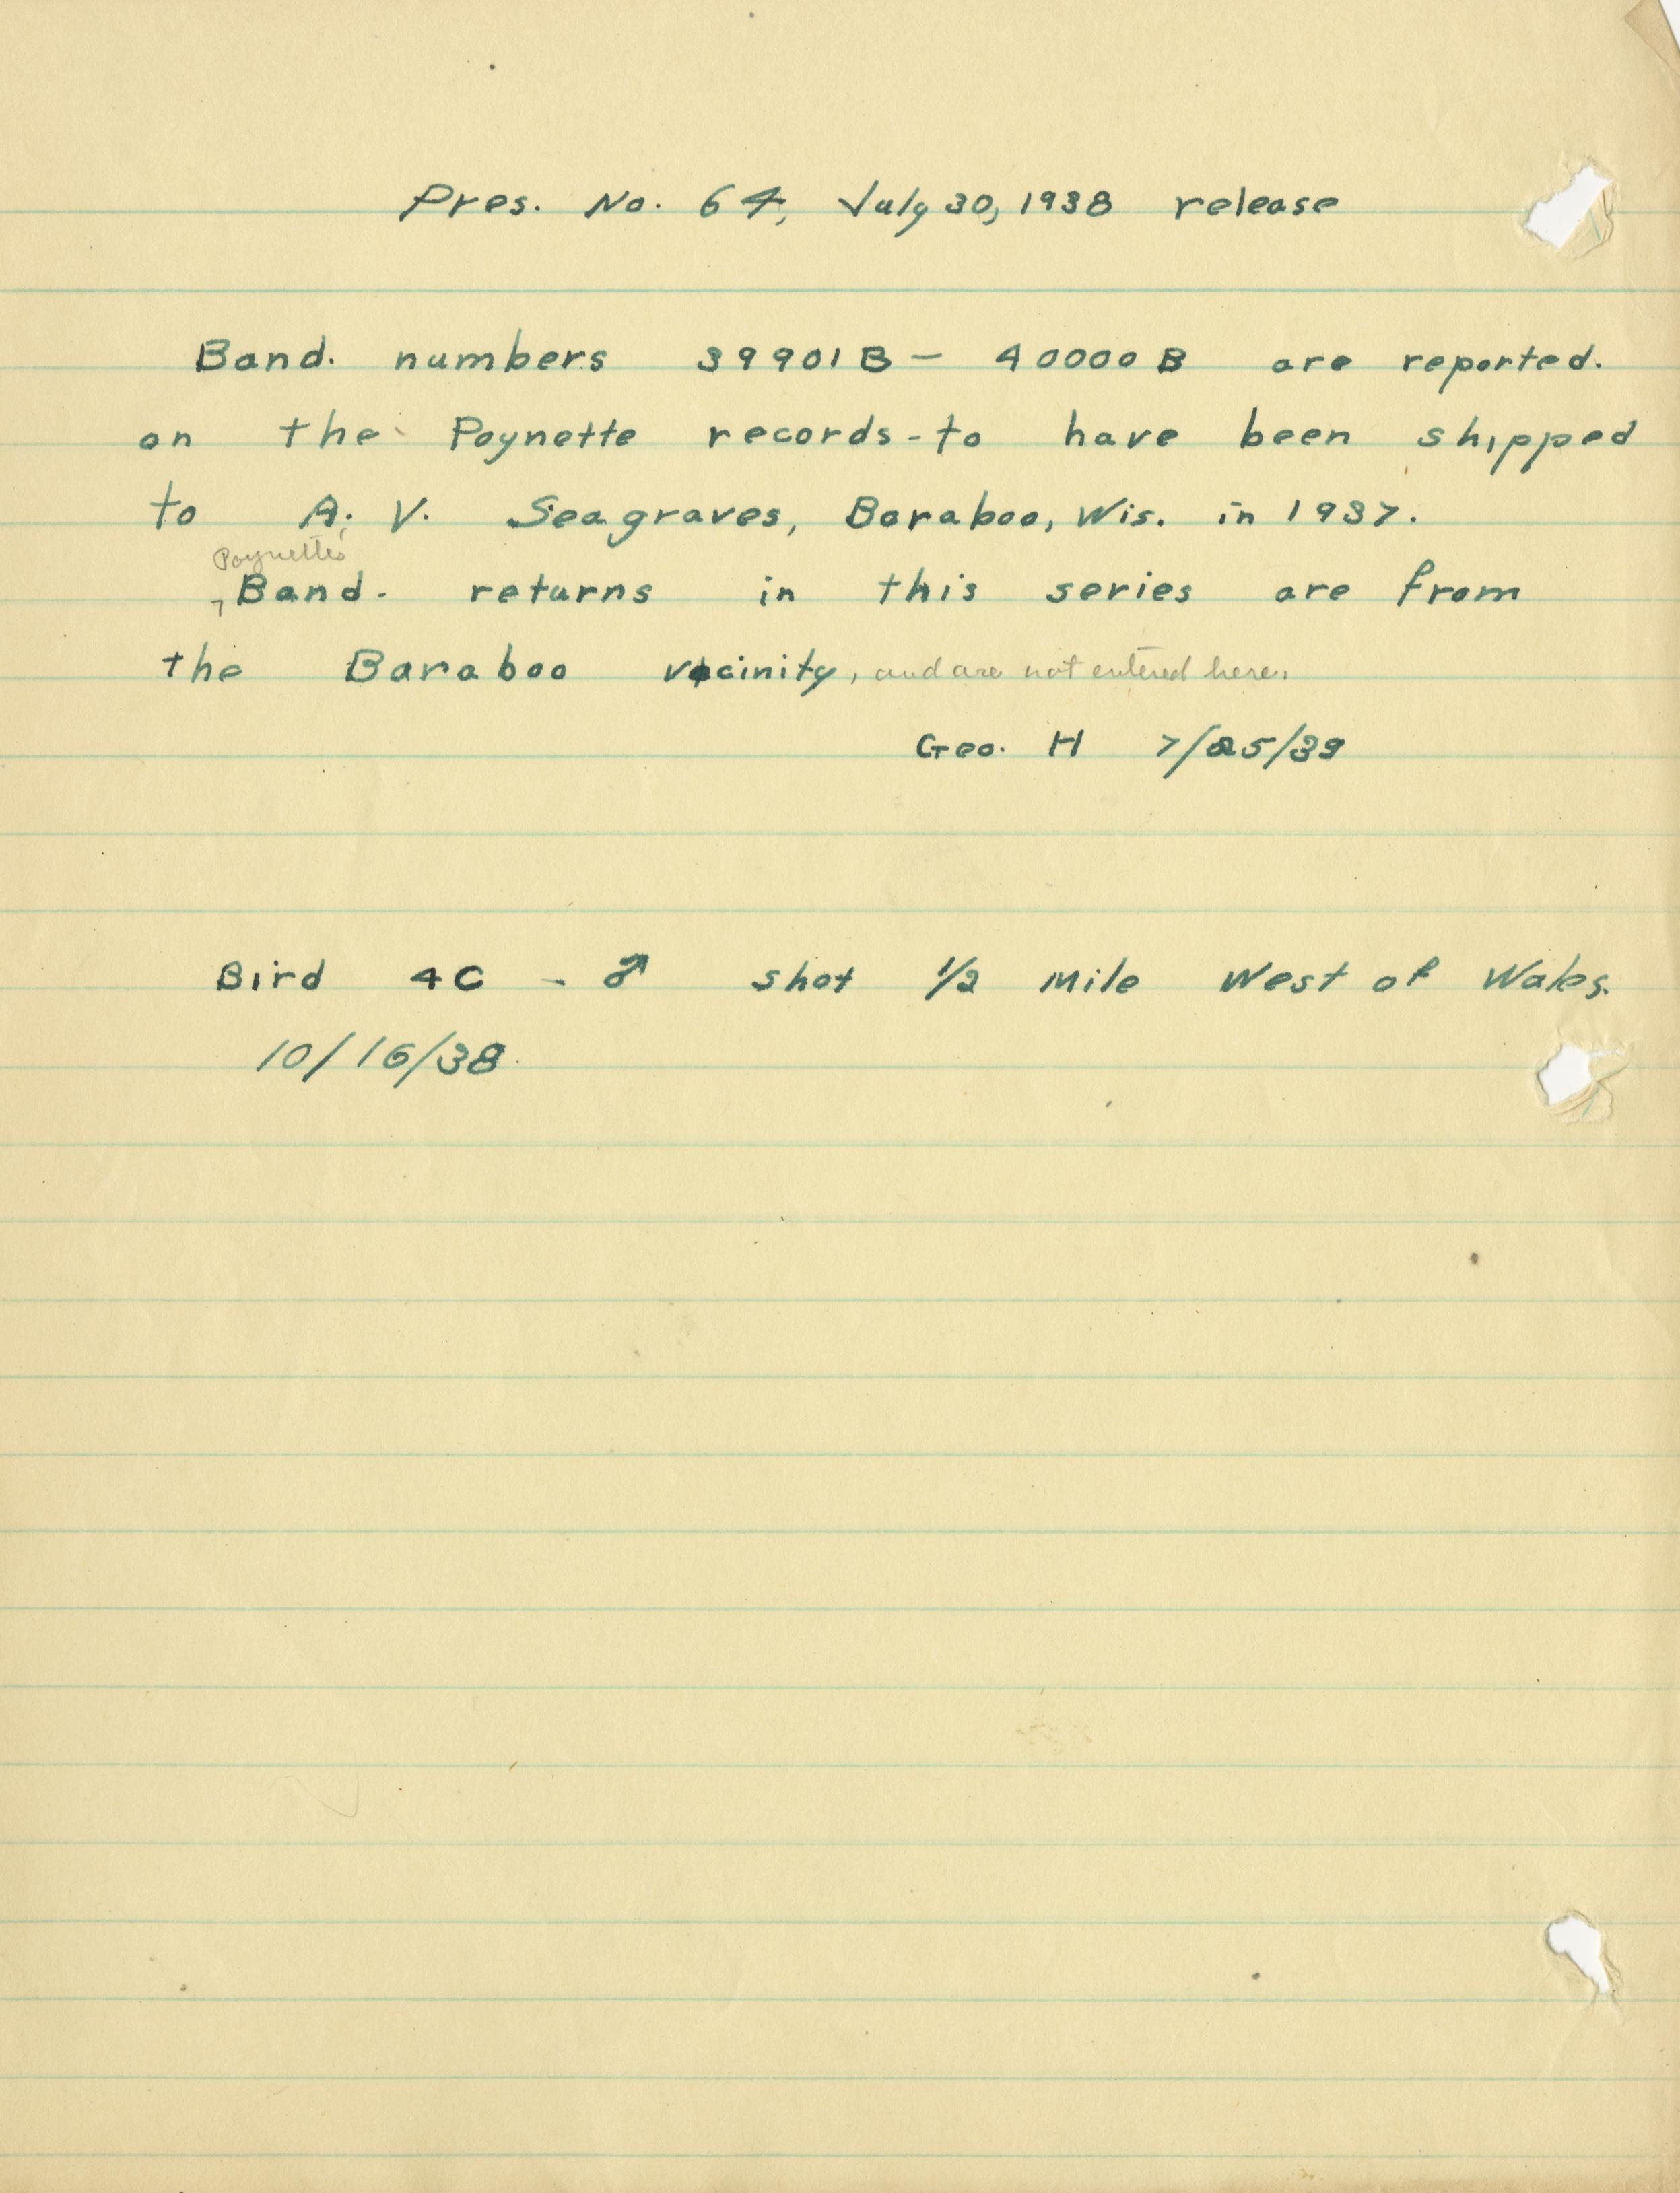 Pres. No. 64, July 30, 1938 release
Band. numbers 39901B - 40000B are reported.
on the Poynette records-to have been shipped
to A. V. Seagraves, Baraboo, Wis. in 1937.
Poynette
Band. returns in this series are from
the Baraboo vicinity, and are not entered here.
Geo. H 7/25/39
Bird 4C - ♂ shot 1/2 Mile West of Wales.
10/16/38.